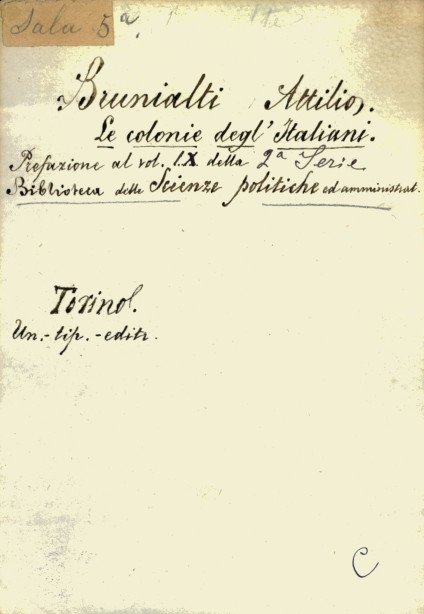 Sala 5ª
Brunialti Attilio.
Le colonie degl' Italiani.
Prefazione al vol. IX della 2ª Serie
Biblioteca delle Scienze politiche ed amministrat.
Torino.
Un.-tip.-editr.
C